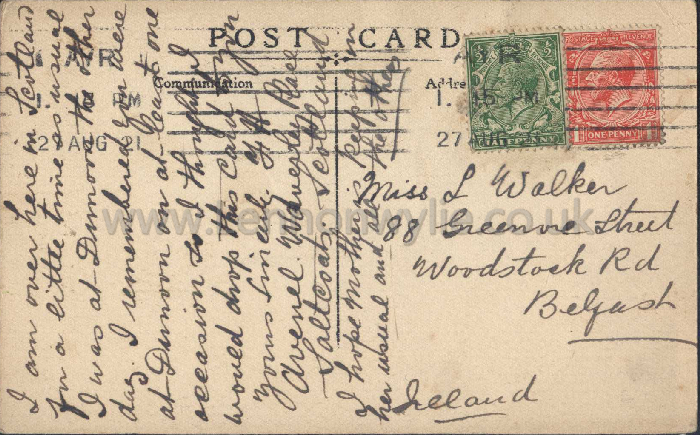 POST CARD
Communication
Address
AYR
1. 15 PM
27 AUG 21
HALFPENNY
POSTAGE REVENUE
ONE PENNY
I am over here in Scotland
for a little time as usual
I was at Dunoon the other
day. I remembered you were
at Dunoon on at least one
occasion so I thought I
would drop this card to you
Yours Sincerely
Avenel Waverley Place
Saltcoats Scotland
I hope Mother is keeping in
her usual and all the others
Miss L Walker
88 Greenore Street
Woodstock Rd
Belfast
Ireland
www.kennonwylie.co.uk